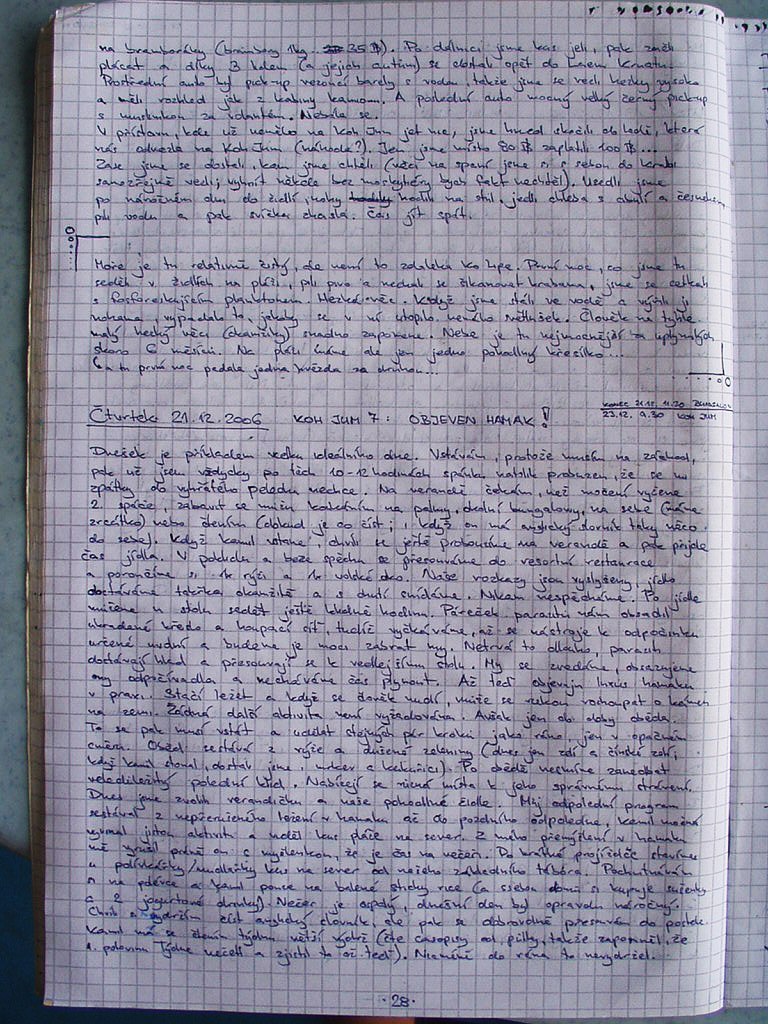 na bramboráky (brambory 1kg 35 ฿). Po dálnici jsme kus jeli, pak začli
plácat a díky 3 lidem (a jejich autům) se dostali opět do
Prostřední auto byl pick-up vezoucí barely s vodou, takže jsme se vezli hezky vysoko
a měli rozhled jak z kabiny kamionu. A poslední auto mocný velký černý pick-up
s za volantem. Nebála se.
V přístavu, kde už nemělo na Koh Jum jet nic, jsme hned skočili do lodě, která
nás odvezla na Koh Jum (náhoda?). Jen jsme místo 80 ฿ zaplatili 100 ฿...
Zase jsme se dostali, kam jsme chtěli (věci na spaní jsme si s sebou do Krabi
samozřejmě vzali, vyhnít někde bez moskytiéry bych fakt nechtěl). Usedli jsme
po náročném dnu do židlí, nohy hodili na stůl, jedli chleba s a česnekem
pili vodu a pak svíčka zhasla. Čas jít spát.
Moře je tu relativně čistý, ale není to zdaleka Ko Lipe. První noc, co jsme tu
seděli v židlích na pláži, pili pivo a nechali se šikanovat krabama, jsme se setkali
s fosforeskujícím planktonem. Hezká věc. Když jsme stáli ve vodě a vířili jí
nohama, vypadalo to, jakoby se v ní utopilo několik světlušek. Člověk na tyhle
malý hezký věci (okamžiky) snadno zapomene. Nebe je tu nejmocnější za uplynulých
skoro 6 měsíců. Na pláži máme ale jen jedno pohodlný křesílko...
a tu první noc padala jedna hvězda za druhou...
Čtvrtek 21.12.2006 KOH JUM 7: OBJEVEN HAMAK!
KONEC 21.12. 11.20
23.12. 9.30 KOH JUM
Dnešek je příkladem vcelku ideálního dne. Vstávám, protože musím na záchod,
pak už jsem vždycky po těch 10-12 hodinách spánku natolik probuzen, že se mi
zpátky do vyhřátýho pelechu nechce. Na verandě čekám, než močení vyžene
2. spáče, zabavit se můžu koukáním na palmy, okolní bungalowy, na sebe (máme
zrcátko) nebo čtením (obkud je co číst; i když on má anglický slovník taky něco
do sebe). Když Kamil vstane, chvíli se ještě probouzíme na verandě a pak přijde
čas jídla. V poklidu a beze spěchu se přesouváme do resortní restaurace
a poroučíme si 1x rýži a 1x volské oko. Naše rozkazy jsou vyslyšeny, jídlo
dostáváme takřka okamžitě a s chutí snídáme. Nikam nespěcháme. Po jídle
můžeme u stolu sedět ještě klidně hodinu. Páreček parazitů nám obsadil
ukradené křeslo a houpací síť, tudíž vyčkáváme, až se nástroje k odpočinku
určené uvolní a budeme je moci zabrat my. Netrvá to dlouho, paraziti
dostávají hlad a přesouvají se k vedlejšímu stolu. My se zvedáme, obsazujeme
ony odpočívadla a necháváme čas plynout. Až teď objevuju luxus hamaku
v praxi. Stačí ležet a když se člověk nudí, může se rukou rozhoupat o kámen
na zemi. Žádná další aktivita není vyžadována. Avšak jen do doby oběda.
To se pak musí vstát a udělat stejných pár kroků jako ráno, jen v opačném
směru. Oběd sestává z rýže a dušené zeleniny (dnes jen zelí a čínské zelí,
když Kamil stonal, dostali jsme i mrkev a kukuřici). Po obědě nesmíme zanedbat
veledůležitý polední klid. Nabízejí se různá místa k jeho správnému strávení.
Dnes jsme zvolili verandičku a naše pohodlné židle. Můj odpolední program
sestával z nepřerušeného ležení v hamaku až do pozdního odpoledne, Kamil možná
vyvinul jinou aktivitu a viděl kus pláže na sever. Z mého přemýšlení v hamaku
mě vyrušil právě on s myšlenkou, že je čas na večeři. Po krátké projížďce stavíme
u polívkářky/nudlařky kus na sever od našeho základního tábora. Pochutnávám
si na polévce a Kamil pouze na balené sticky rice (a sebou domů si kupuje sušenky
a 2 jogurtové drinky). Večer je ospalý, dnešní den byl opravdu náročný.
Chvíli vydržím číst anglický slovník, ale pak se dobrovolně přesouvám do postele.
Kamil má se čtením trochu větší výdrž (čte časopisy od, takže zapomněl, že
1. polovinu týdne nečetl a zjistil to až teď). Nicméně do rána to nevydržel.
·28·